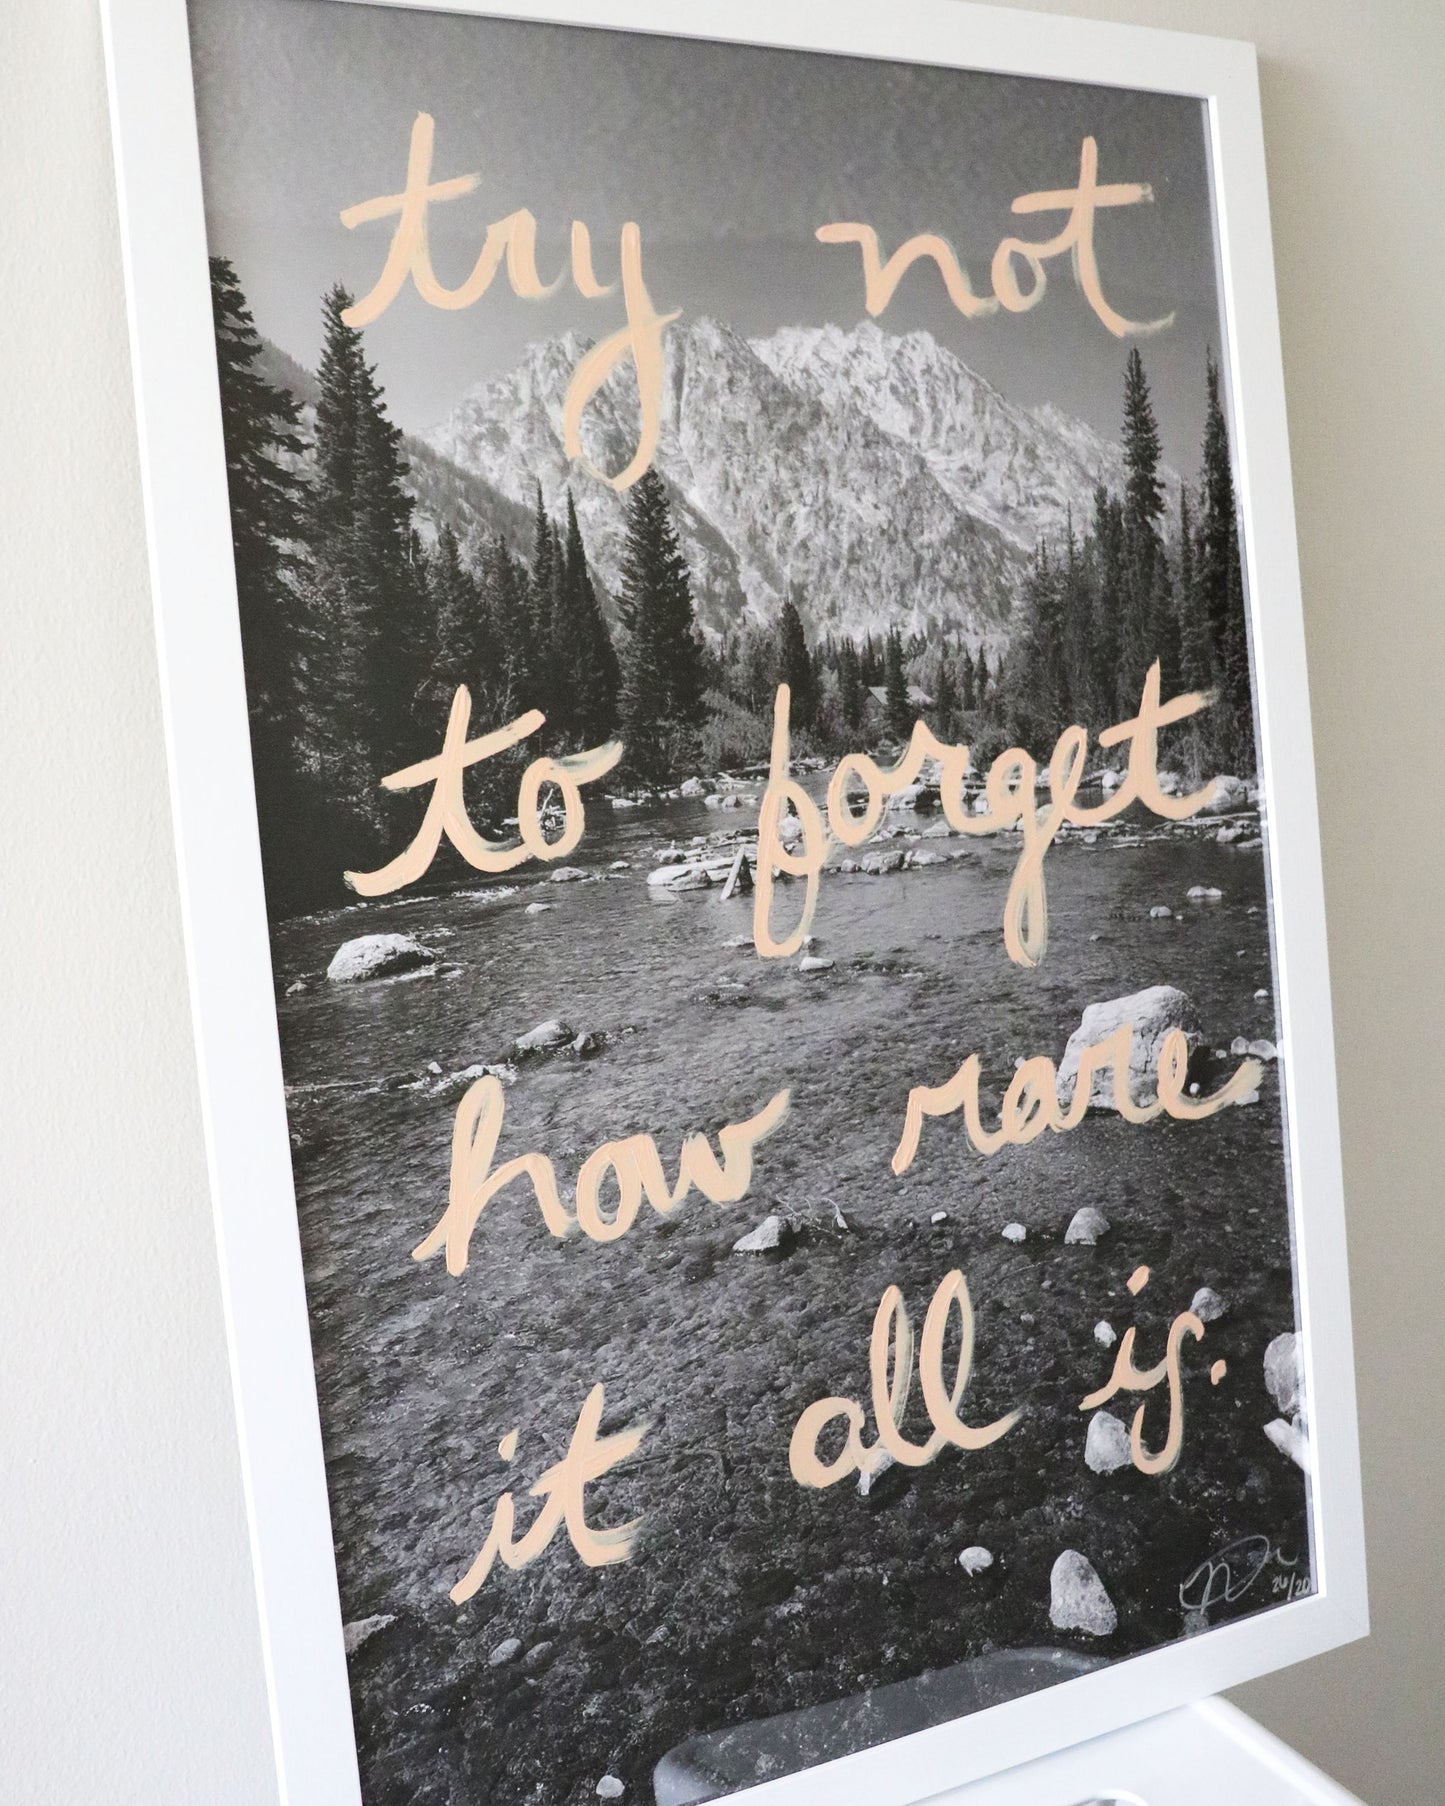 try not
to forget
how rare
it all is.